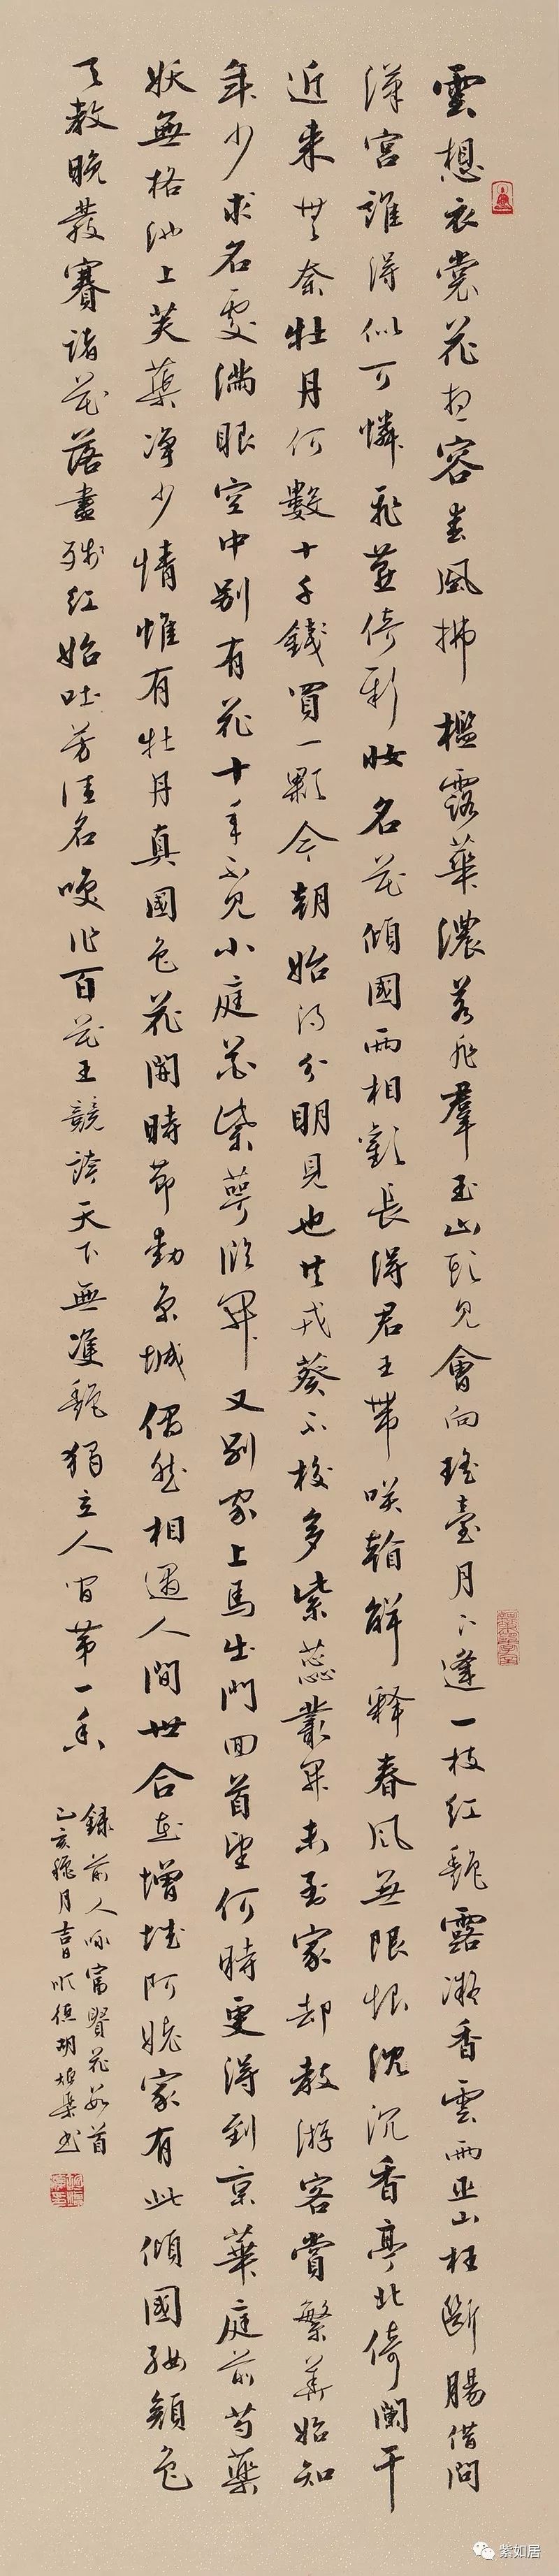 雲想衣裳花想容春風拂檻露華濃若非羣玉山頭見會向瑤臺月下逢一枝紅艷露凝香雲雨巫山枉斷腸借問
漢宮誰得似可憐飛燕倚新妝名花傾國兩相歡長得君王帶咲看解釋春風無限恨沈沉香亭北倚闌干
近來無奈牡丹何數十千錢買一顆今朝始得分明見也共戎葵不校多紫蕊叢開未到家却教游客賞繁華始知
年少求名處滿眼空中別有花十年不見小庭花紫萼臨開又別家上馬出門回首望何時更得到京華庭前芍藥
妖無格池上芙蕖淨少情惟有牡丹真國色花開時節動京城偶然相遇人間世合在增城阿姥家有此傾國好顏色
天教晚發賽諸花落盡殘紅始吐芳佳名喚作百花王競誇天下無雙艷獨立人間第一香
錄前人咏富貴花數首
己亥穐月吉日順德胡集書
紫如居